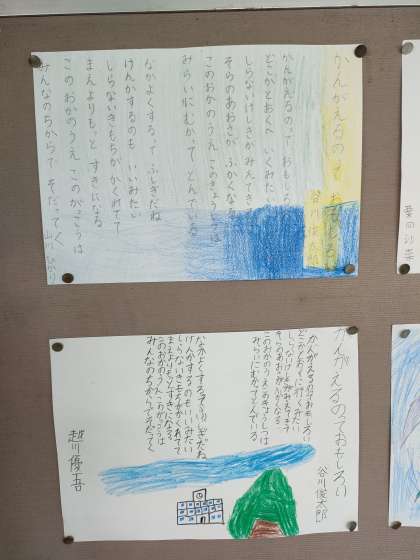 かんがえるのって おもしろい
谷川俊太郎
かんがえるのって おもしろい
どこかとおくへ いくみたい
しらないけしきが みえてきて
そらのあおさが ふかくなる
このおかのうえ このきょうしつは
みらいにむかって とんでいる
なかよくするって ふしぎだね
けんかするのも いいみたい
しらないきもちが かくれてて
まえよりもっと すきになる
このおかのうえ このがっこうは
みんなのちからで そだってく
かんがえるのっておもしろい
谷川俊太郎
かんがえるのっておもしろい
どこかとおくに行くみたい
しらないけしきがみえてきて
そらのあおさがふかくなる
このおかのうえこのきょうしつは
みらいにむかってとんでいる
なかよくするってふしぎだね
けんかするのもいいみたい
しらないきもちがかくれてて
まえよりもっとすきになる
このおかのうえこのがっこうは
みんなのちからでそだってく
越川優吾